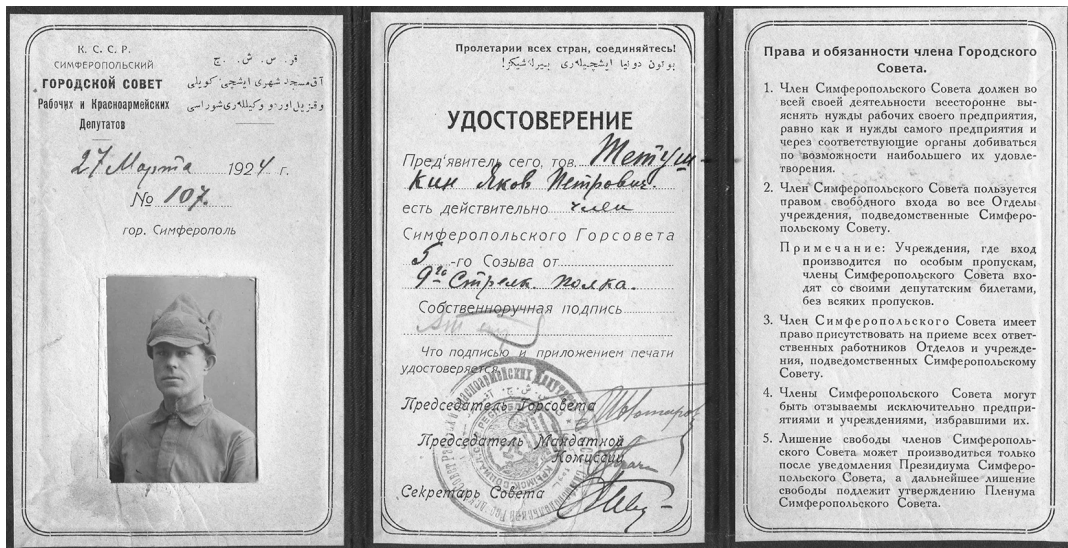 К. С. С. Р.
СИМФЕРОПОЛЬСКИЙ
ГОРОДСКОЙ СОВЕТ
Рабочих и Красноармейских
Депутатов
قر. س. ش. ج
آق مسجد شهری ایشچی كویلی
وقزیل اوردو وكیللەری شوراسی
27 Марта 1924 г.
№ 107.
гор. Симферополь
Пролетарии всех стран, соединяйтесь!
بوتون دونیا ایشچیلەری بیرلەشیكز!
УДОСТОВЕРЕНИЕ
Пред'явитель сего, тов. Тетуш-
кин Яков Петрович.
есть действительно член
Симферопольского Горсовета
5-го Созыва от
9го Стрелк. полка.
Собственноручная подпись
Что подписью и приложением печати
удостоверяется.
Председатель Горсовета
Председатель Мандатной
Комиссии
Секретарь Совета
Права и обязанности члена Городского
Совета.
1. Член Симферопольского Совета должен во
всей своей деятельности всесторонне вы-
яснять нужды рабочих своего предприятия,
равно как и нужды самого предприятия и
через соответствующие органы добиваться
по возможности наибольшего их удовле-
творения.
2. Член Симферопольского Совета пользуется
правом свободного входа во все Отделы
учреждения, подведомственные Симферо-
польскому Совету.
Примечание: Учреждения, где вход
производится по особым пропускам,
члены Симферопольского Совета вхо-
дят со своими депутатским билетами,
без всяких пропусков.
3. Член Симферопольского Совета имеет
право присутствовать на приеме всех ответ-
ственных работников Отделов и учрежде-
ния, подведомственных Симферопольскому
Совету.
4. Члены Симферопольского Совета могут
быть отзываемы исключительно предпри-
ятиями и учреждениями, избравшими их.
5. Лишение свободы членов Симферополь-
ского Совета может производиться только
после уведомления Президиума Симферо-
польского Совета, а дальнейшее лишение
свободы подлежит утверждению Пленума
Симферопольского Совета.